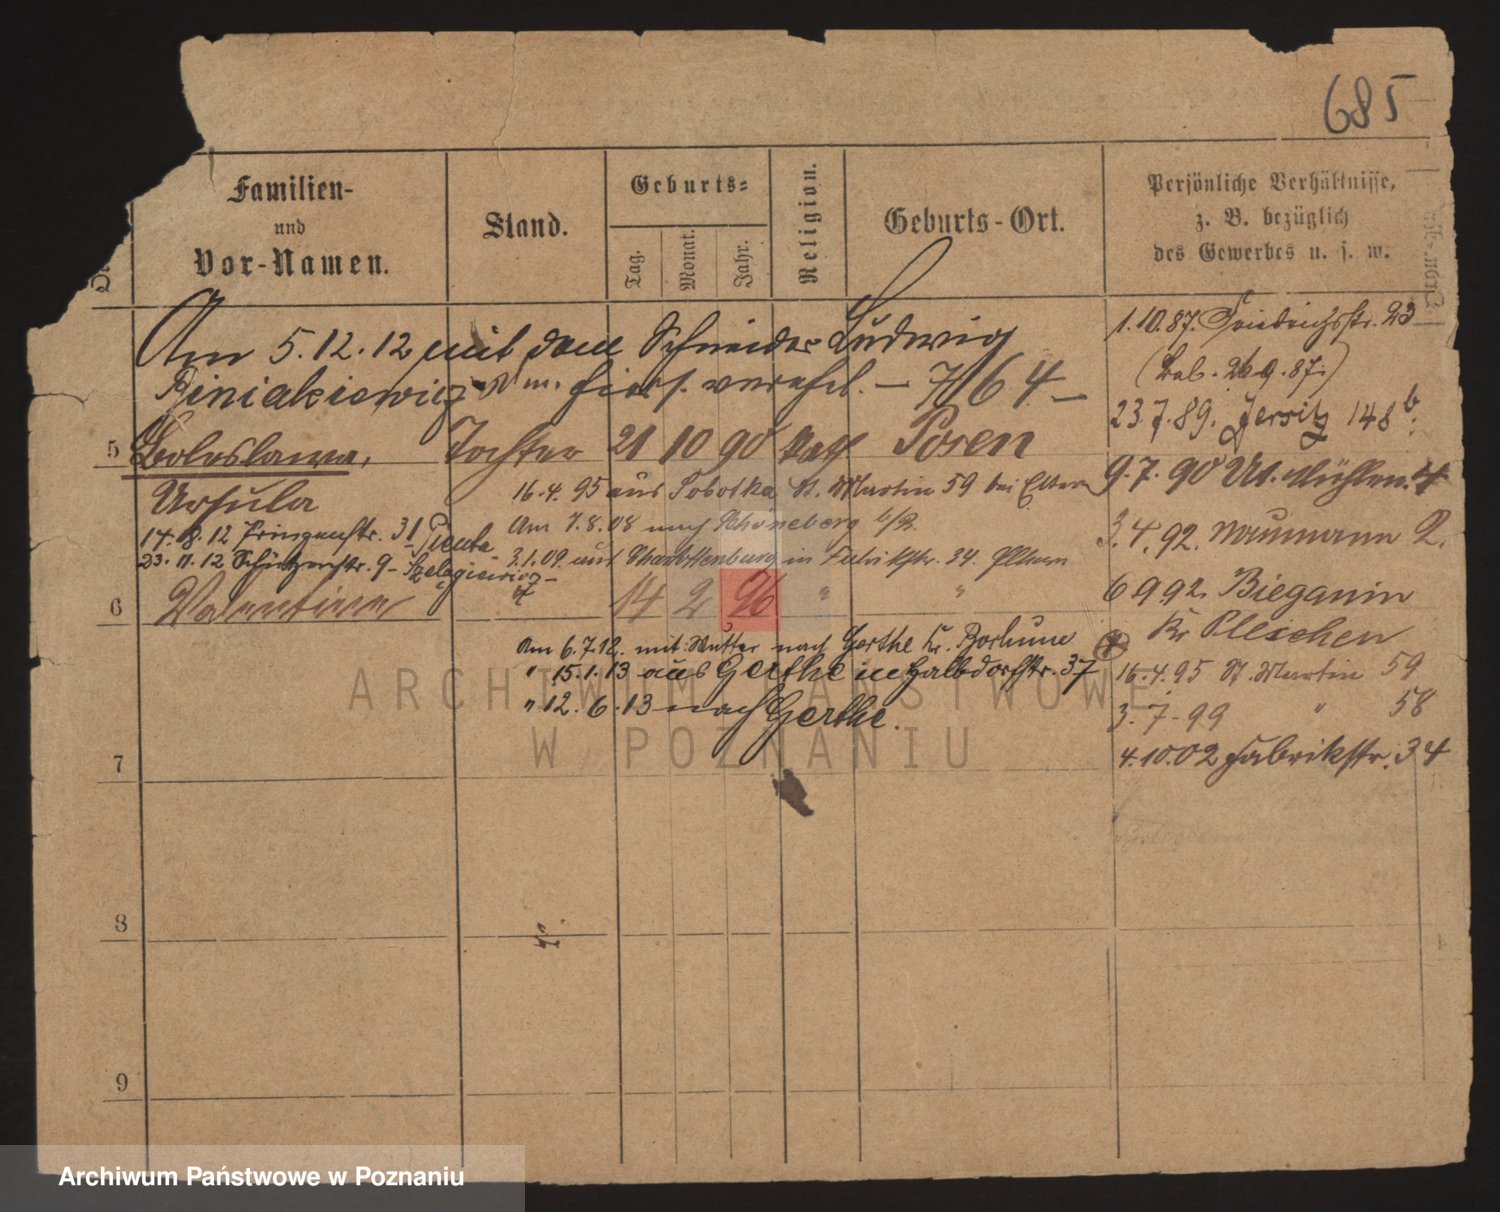 685
Familien-
und
Vor-Namen.
Stand.
Geburts-
Tag.
Monat.
Jahr.
Religion.
Geburts-Ort.
Persönliche Verhältnisse,
z. B. bezüglich
des Gewerbes u. s. w.
Am 5.12.12 mit dem Schneider Ludwig
Biniakiewicz hiers. verehel. - 7164 -
5 Boleslawa, Tochter 21 10 90 kath Posen
Ursula
16.4.95 aus Sobotka St. Martin 59 bei Eltern
Am 7.8.08 nach Schöneberg b/B.
14.8.12 Prinzenstr. 31 Pienta
3.1.09 aus Charlottenburg in Fabrikstr. 34. Eltern
23.11.12 Schützenstr. 9 - Szelagiewicz -
6 Valentine " 14 2 96 " "
Am 6.7.12. mit Mutter nach Gerthe Kr. Bochum
" 15.1.13 aus Gerthe in Halbdorfstr. 37
" 12.6.13 nach Gerthe.
7
8
9
1.10.87. Friedrichsstr. 23
(Bab. 26.9.87.)
23.7.89. Jersitz 148 b.
9.7.90 Mühlen. 4
3.4.92. Naumann
6 9 92. Bieganin
Kr Pleschen
16.4.95 St. Martin 59
3.7.99 " 58
4.10.02 Fabrikstr. 34
ARCHIWUM PAŃSTWOWE
W POZNANIU
Archiwum Państwowe w Poznaniu